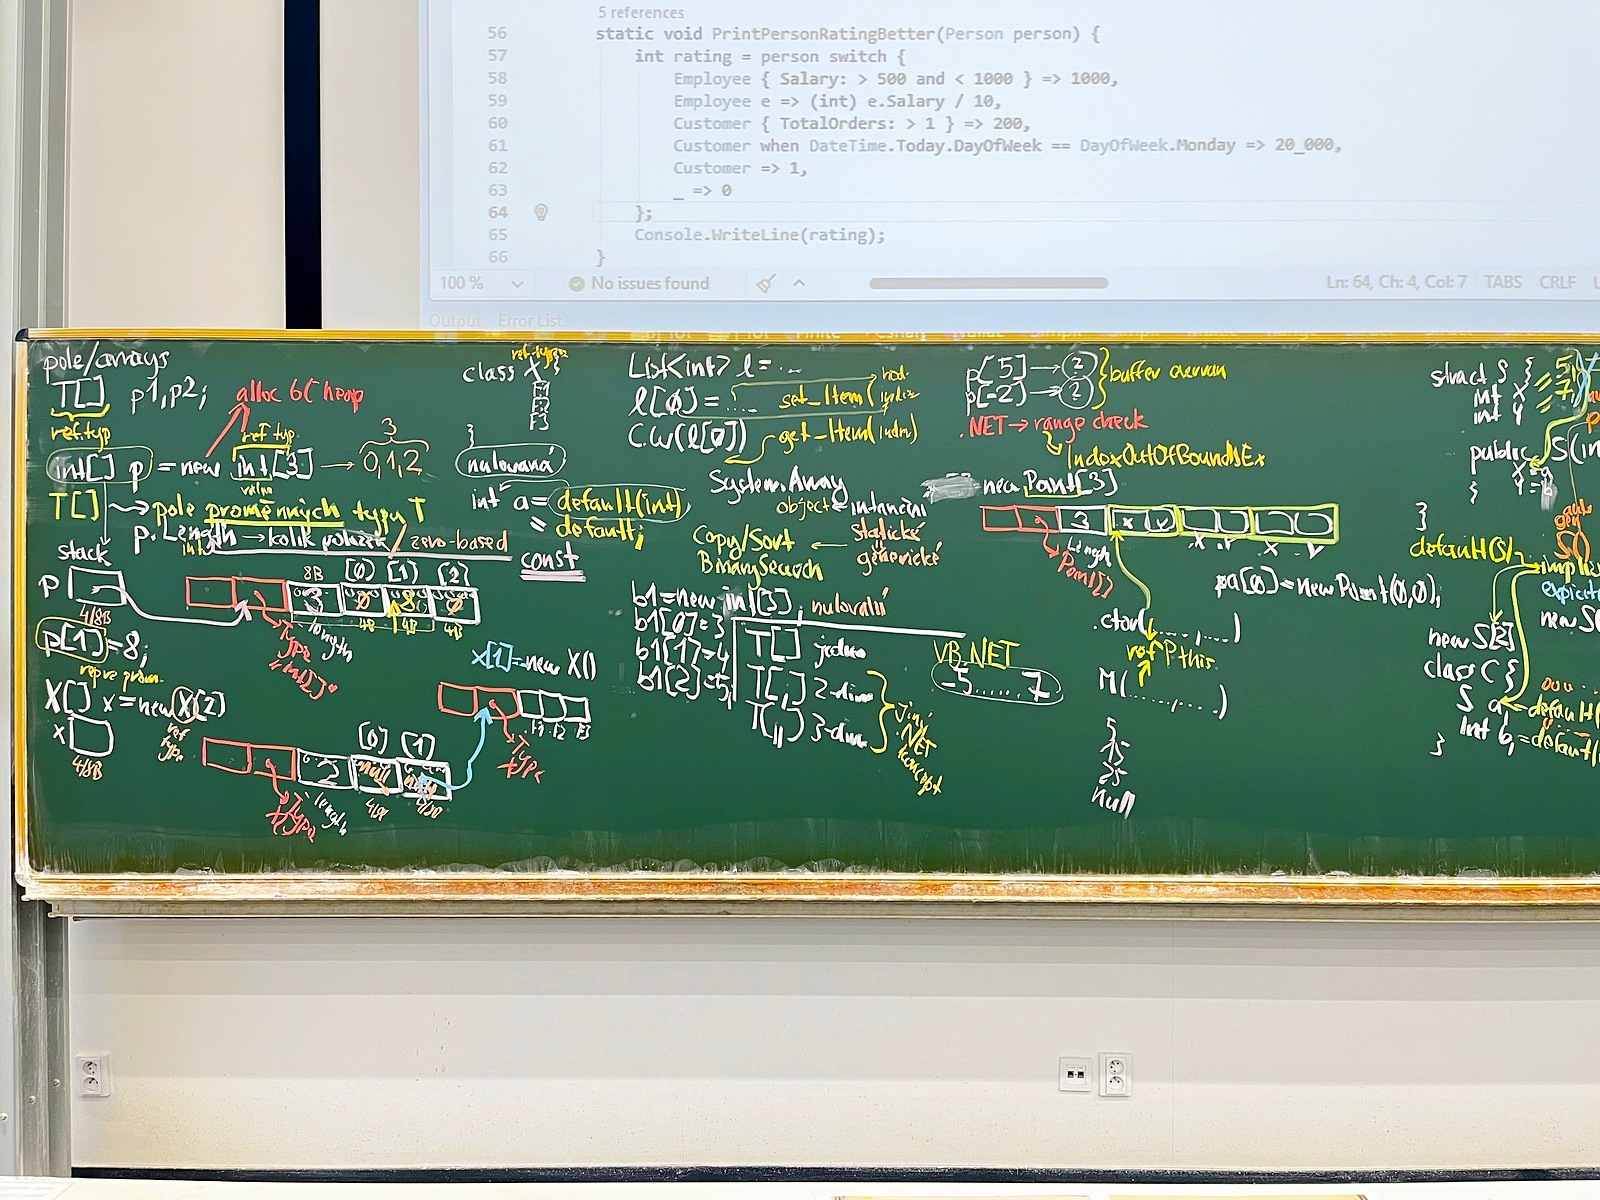 5 references
56 static void PrintPersonRatingBetter(Person person) {
57 int rating = person switch {
58 Employee { Salary: > 500 and < 1000 } => 1000,
59 Employee e => (int) e.Salary / 10,
60 Customer { TotalOrders: > 1 } => 200,
61 Customer when DateTime.Today.DayOfWeek == DayOfWeek.Monday => 20_000,
62 Customer => 1,
63 _ => 0
64 };
65 Console.WriteLine(rating);
66 }
100 % No issues found Ln: 64, Ch: 4, Col: 7 TABS CRLF
Output Error List
pole/arrays
T[] p1,p2;
ref.typ
alloc GC heap
ref typ
int[] p = new int[3] → 0,1,2
3
T[] → pole proměnných typu T
p.Length → kolik položek
int
zero-based
stack
p
4/8B
8B [0] [1] [2]
3 0 8 0
length 4B 4B 4B
Type
"int[]"
p[1]=8;
repre prom.
X[] x = new X[2]
ref
type
x
4/8B
[0] [1]
2 null
Type length 4/8B
x[1]=new X()
F1 F2 F3
Type
ref.type
class X {
F1
F2
F3
}
nulovaná
int a = default(int)
= default;
const
List<int> l = ...
l[0] = .... set_Item(
C.W(l[0]) get_Item(index)
System.Array
object instanční
statické
generické
Copy/Sort
BinarySearch
b1=new int[3]; nulování
b1[0]=3
b1[1]=4
b1[2]=5;
T[] jedno
T[,] 2-dim
T[,,] 3-dim
jiný
.NET
koncept
VB.NET
-5.....7
p[5] → 2
p[-2] → 2
buffer overrun
.NET → range check
IndexOutOfBoundsEx
new Point[3]
3 x y
length x y x y
Point[]
pa[0] = new Point(0,0);
.ctor(....,....)
ref this
M(........)
5
15
25
null
struct S {
int X
int Y
public S(in
}
}
default(S)
new S[2]
class C {
S a = default(
int b = default(
}